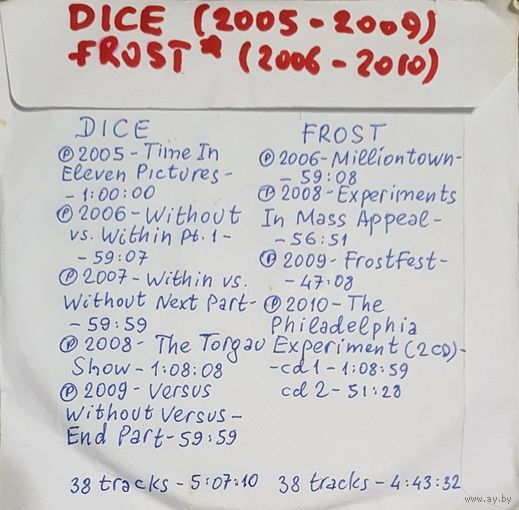 DICE (2005-2009)
FROST* (2006-2010)
DICE
℗ 2005-Time In
Eleven Pictures-
-1:00:00
℗ 2006-Without
vs. Within Pt.1-
-59:07
℗ 2007-Within vs.
Without Next Part-
-59:59
℗ 2008-The Torgau
Show-1:08:08
℗ 2009-Versus
Without Versus-
End Part-59:59
38 tracks-5:07:10
FROST
℗ 2006-Milliontown-
-59:08
℗ 2008-Experiments
In Mass Appeal-
-56:51
℗ 2009-FrostFest-
-47:08
℗ 2010-The
Philadelphia
Experiment (2CD)-
-cd1-1:08:59
cd2-51:28
38 tracks-4:43:32
www.ay.by